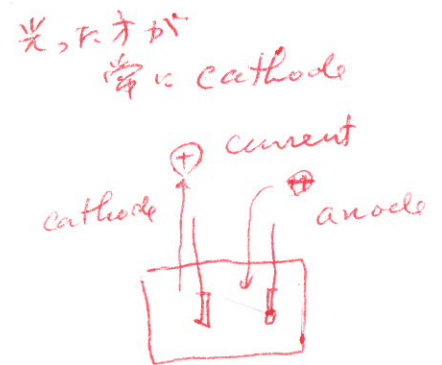 光った方が
常に cathode
⊕ current
cathode
⊕
anode